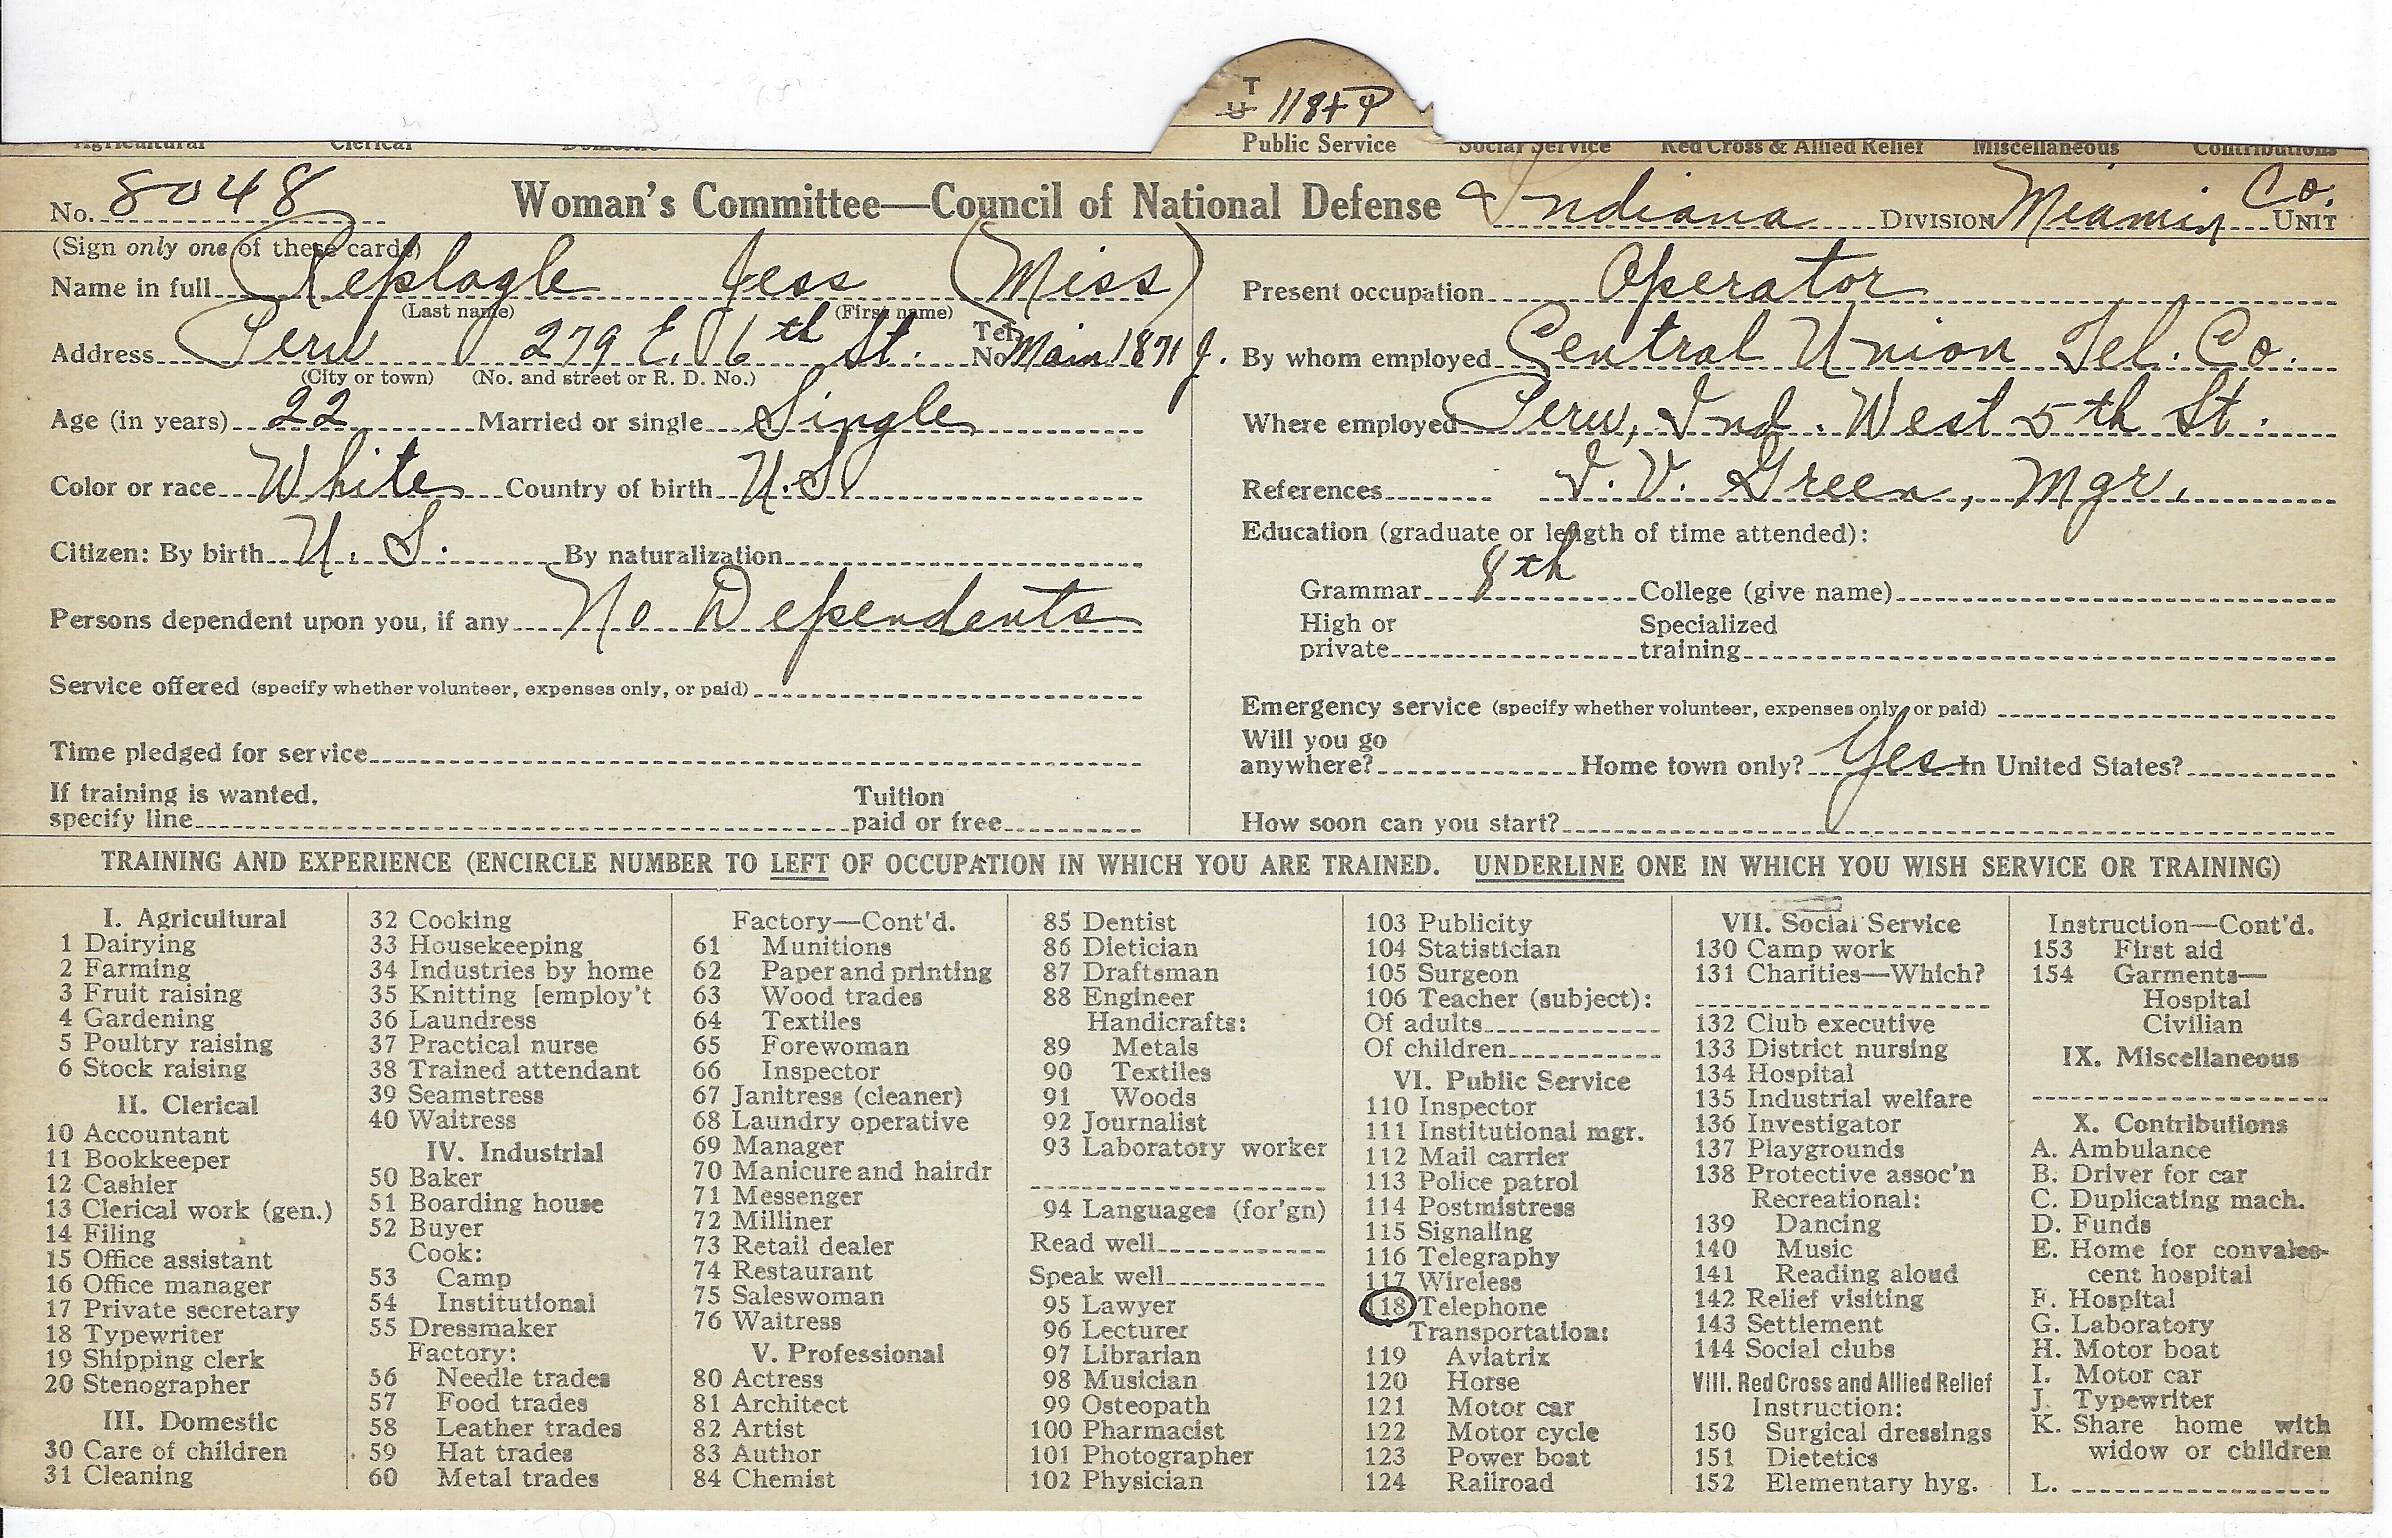 T
U 118
Public Service Social Service Red Cross & Allied Relief Miscellaneous Contributions
Agricultural Clerical Domestic
No. 8048 Woman's Committee—Council of National Defense Indiana DIVISION Miami Co. UNIT
(Sign only one of these cards)
Name in full Replogle Jess (Miss)
(Last name) (First name)
Address Peru 279 E. 6th St. Tel. No. Main 1871 J.
(City or town) (No. and street or R. D. No.)
Age (in years) 22 Married or single Single
Color or race White Country of birth U.S.
Citizen: By birth U. S. By naturalization
Persons dependent upon you, if any No Dependents
Service offered (specify whether volunteer, expenses only, or paid)
Time pledged for service
If training is wanted, specify line Tuition paid or free
Present occupation Operator
By whom employed Central Union Tel. Co.
Where employed Peru, Ind. West 5th St.
References I. V. Green, Mgr.
Education (graduate or length of time attended):
Grammar 8th College (give name)
High or private Specialized training
Emergency service (specify whether volunteer, expenses only, or paid)
Will you go anywhere? Home town only? Yes In United States?
How soon can you start?
TRAINING AND EXPERIENCE (ENCIRCLE NUMBER TO LEFT OF OCCUPATION IN WHICH YOU ARE TRAINED. UNDERLINE ONE IN WHICH YOU WISH SERVICE OR TRAINING)
I. Agricultural
1 Dairying
2 Farming
3 Fruit raising
4 Gardening
5 Poultry raising
6 Stock raising
II. Clerical
10 Accountant
11 Bookkeeper
12 Cashier
13 Clerical work (gen.)
14 Filing
15 Office assistant
16 Office manager
17 Private secretary
18 Typewriter
19 Shipping clerk
20 Stenographer
III. Domestic
30 Care of children
31 Cleaning
32 Cooking
33 Housekeeping
34 Industries by home
35 Knitting [employ't
36 Laundress
37 Practical nurse
38 Trained attendant
39 Seamstress
40 Waitress
IV. Industrial
50 Baker
51 Boarding house
52 Buyer
Cook:
53 Camp
54 Institutional
55 Dressmaker
Factory:
56 Needle trades
57 Food trades
58 Leather trades
59 Hat trades
60 Metal trades
Factory—Cont'd.
61 Munitions
62 Paper and printing
63 Wood trades
64 Textiles
65 Forewoman
66 Inspector
67 Janitress (cleaner)
68 Laundry operative
69 Manager
70 Manicure and hairdr
71 Messenger
72 Milliner
73 Retail dealer
74 Restaurant
75 Saleswoman
76 Waitress
V. Professional
80 Actress
81 Architect
82 Artist
83 Author
84 Chemist
85 Dentist
86 Dietician
87 Draftsman
88 Engineer
Handicrafts:
89 Metals
90 Textiles
91 Woods
92 Journalist
93 Laboratory worker
94 Languages (for'gn)
Read well
Speak well
95 Lawyer
96 Lecturer
97 Librarian
98 Musician
99 Osteopath
100 Pharmacist
101 Photographer
102 Physician
103 Publicity
104 Statistician
105 Surgeon
106 Teacher (subject):
Of adults
Of children
VI. Public Service
110 Inspector
111 Institutional mgr.
112 Mail carrier
113 Police patrol
114 Postmistress
115 Signaling
116 Telegraphy
117 Wireless
118 Telephone
Transportation:
119 Aviatrix
120 Horse
121 Motor car
122 Motor cycle
123 Power boat
124 Railroad
VII. Social Service
130 Camp work
131 Charities—Which?
132 Club executive
133 District nursing
134 Hospital
135 Industrial welfare
136 Investigator
137 Playgrounds
138 Protective assoc'n
Recreational:
139 Dancing
140 Music
141 Reading aloud
142 Relief visiting
143 Settlement
144 Social clubs
VIII. Red Cross and Allied Relief
Instruction:
150 Surgical dressings
151 Dietetics
152 Elementary hyg.
Instruction—Cont'd.
153 First aid
154 Garments—
Hospital
Civilian
IX. Miscellaneous
X. Contributions
A. Ambulance
B. Driver for car
C. Duplicating mach.
D. Funds
E. Home for convales-
cent hospital
F. Hospital
G. Laboratory
H. Motor boat
I. Motor car
J. Typewriter
K. Share home with
widow or children
L.